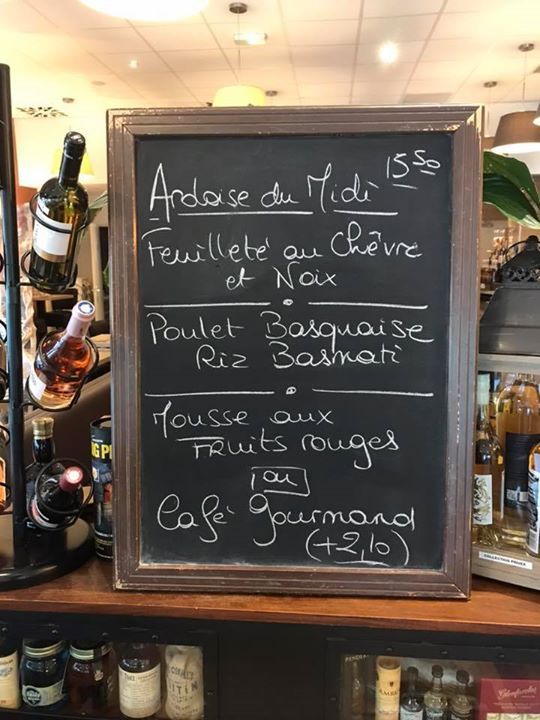 Ardoise du Midi 15.50
Feuilleté au Chêvre
et Noix
Poulet Basquaise
Riz Basmati
Mousse aux
FRuits rouges
ou
Café gourmand
(+2,10)
COLLECTION PRIVEE
Glenfarclas